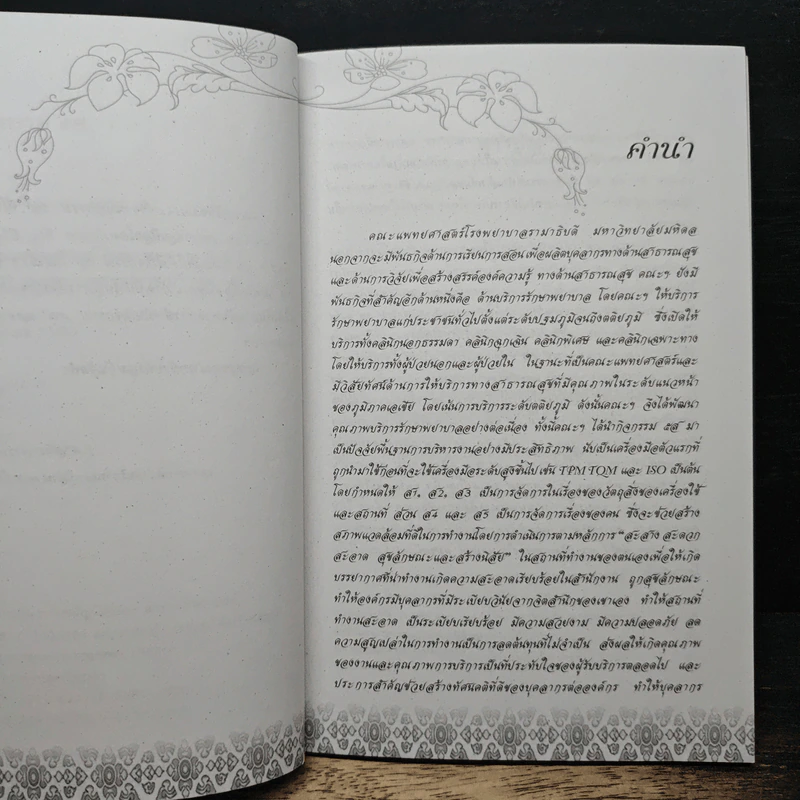 คำนำ
คณะแพทยศาสตร์โรงพยาบาลรามาธิบดี มหาวิทยาลัยมหิดล
นอกจากจะมีพันธกิจด้านการเรียนการสอนเพื่อผลิตบุคลากรทางด้านสาธารณสุข
และด้านการวิจัยเพื่อสร้างสรรค์องค์ความรู้ ทางด้านสาธารณสุข คณะฯ ยังมี
พันธกิจที่สำคัญอีกด้านหนึ่งคือ ด้านบริการรักษาพยาบาล โดยคณะฯ ให้บริการ
รักษาพยาบาลแก่ประชาชนทั่วไปตั้งแต่ระดับปฐมภูมิจนถึงตติยภูมิ ซึ่งเปิดให้
บริการทั้งคลินิกนอกธรรมดา คลินิกฉุกเฉิน คลินิกพิเศษ และคลินิกเฉพาะทาง
โดยให้บริการทั้งผู้ป่วยนอกและผู้ป่วยใน ในฐานะที่เป็นคณะแพทยศาสตร์และ
มีวิสัยทัศน์ด้านการให้บริการทางสาธารณสุขที่มีคุณภาพในระดับแนวหน้า
ของภูมิภาคเอเชีย โดยเน้นการบริการระดับตติยภูมิ ดังนั้นคณะฯ จึงได้พัฒนา
คุณภาพบริการรักษาพยาบาลอย่างต่อเนื่อง ทั้งนี้คณะฯ ได้นำกิจกรรม ๕ส มา
เป็นปัจจัยพื้นฐานการบริหารงานอย่างมีประสิทธิภาพ นับเป็นเครื่องมือตัวแรกที่
ถูกนำมาใช้ก่อนที่จะใช้เครื่องมือระดับสูงขึ้นไป เช่น TPM TQM และ ISO เป็นต้น
โดยกำหนดให้ ส1, ส2, ส3 เป็นการจัดการในเรื่องของวัตถุสิ่งของเครื่องใช้
และสถานที่ ส่วน ส4 และ ส5 เป็นการจัดการเรื่องของคน ซึ่งจะช่วยสร้าง
สภาพแวดล้อมที่ดีในการทำงานโดยการดำเนินการตามหลักการ “สะสาง สะดวก
สะอาด สุขลักษณะและสร้างนิสัย” ในสถานที่ทำงานของตนเองเพื่อให้เกิด
บรรยากาศที่น่าทำงานเกิดความสะอาดเรียบร้อยในสำนักงาน ถูกสุขลักษณะ
ทำให้องค์กรมีบุคลากรที่มีระเบียบวินัยจากจิตสำนึกของเขาเอง ทำให้สถานที่
ทำงานสะอาด เป็นระเบียบเรียบร้อย มีความสวยงาม มีความปลอดภัย ลด
ความสูญเปล่าในการทำงานเป็นการลดต้นทุนที่ไม่จำเป็น ส่งผลให้เกิดคุณภาพ
ของงานและคุณภาพการบริการเป็นที่ประทับใจของผู้รับบริการตลอดไป และ
ประการสำคัญช่วยสร้างทัศนคติที่ดีของบุคลากรต่อองค์กร ทำให้บุคลากร